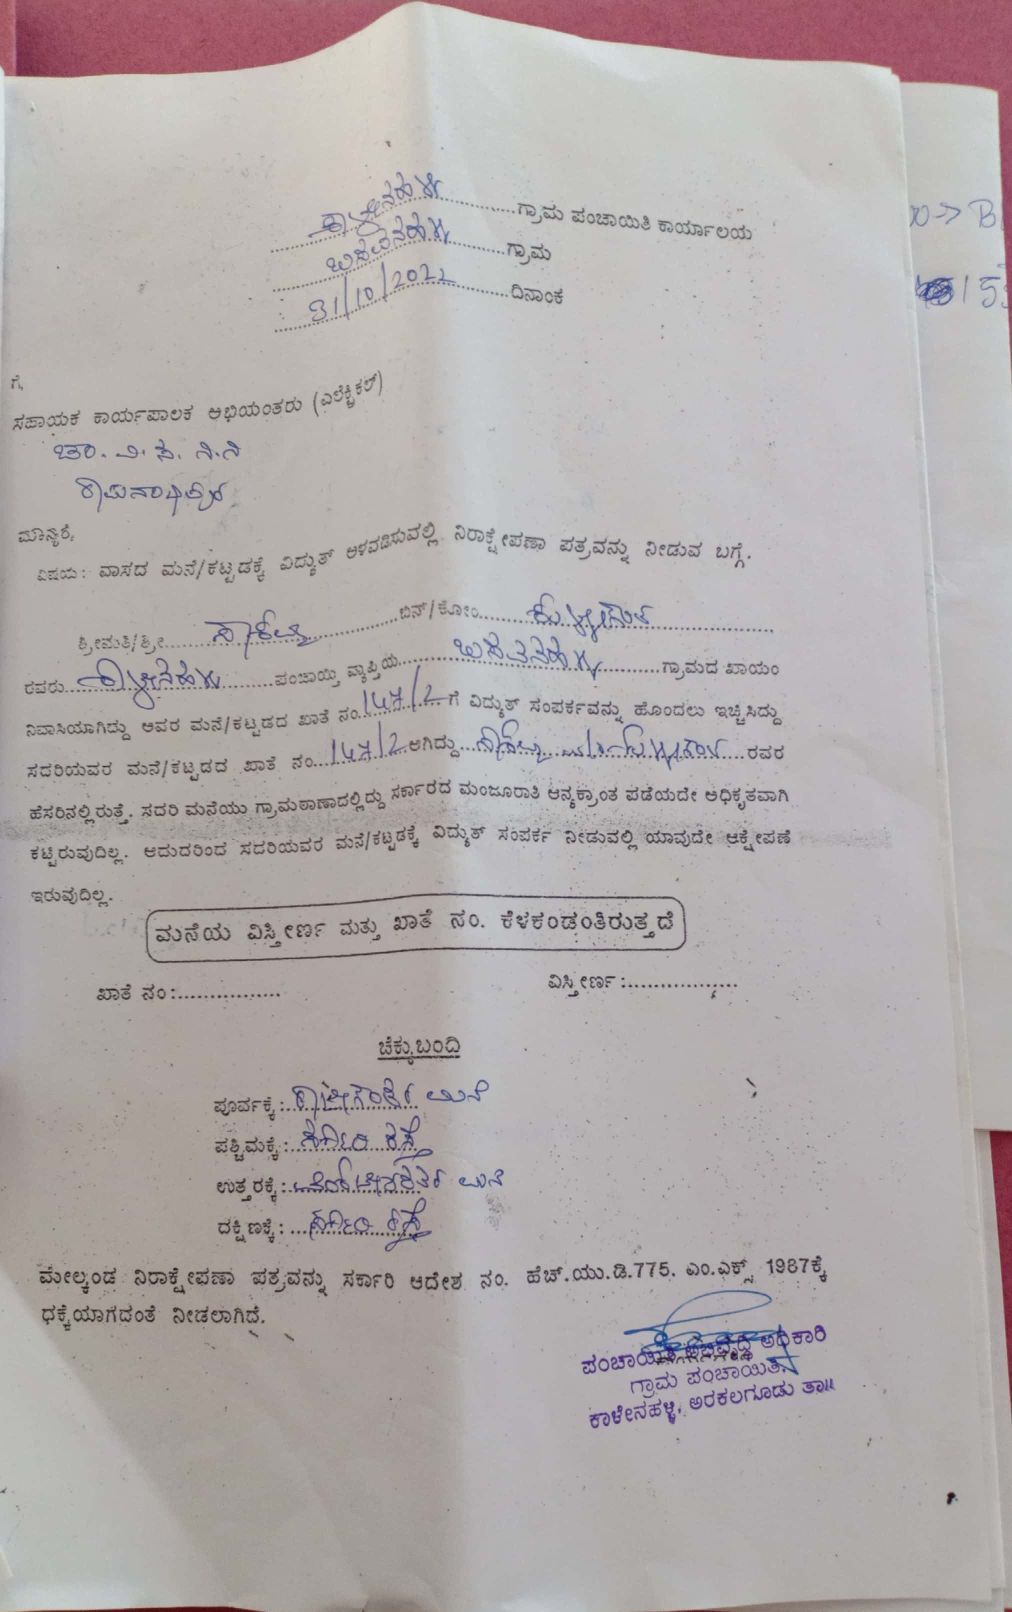 ಕಾಳೇನಹಳ್ಳಿ ಗ್ರಾಮ ಪಂಚಾಯಿತಿ ಕಾರ್ಯಾಲಯ
ಬಸವನಹಳ್ಳಿ ಗ್ರಾಮ
31/10/2022 ದಿನಾಂಕ
ಗೆ,
ಸಹಾಯಕ ಕಾರ್ಯಪಾಲಕ ಅಭಿಯಂತರು (ಎಲೆಕ್ಟ್ರಿಕಲ್)
ಚಾ. ವಿ. ಸ. ನಿ. ನಿ
ಮಾನ್ಯರೆ,
ವಿಷಯ: ವಾಸದ ಮನೆ/ಕಟ್ಟಡಕ್ಕೆ ವಿದ್ಯುತ್ ಅಳವಡಿಸುವಲ್ಲಿ ನಿರಾಕ್ಷೇಪಣಾ ಪತ್ರವನ್ನು ನೀಡುವ ಬಗ್ಗೆ.
ಶ್ರೀಮತಿ/ಶ್ರೀ ಬಿನ್/ಕೋಂ
ರವರು ಕಾಳೇನಹಳ್ಳಿ ಪಂಚಾಯ್ತಿ ವ್ಯಾಪ್ತಿಯ ಬಸವನಹಳ್ಳಿ ಗ್ರಾಮದ ಖಾಯಂ
ನಿವಾಸಿಯಾಗಿದ್ದು ಅವರ ಮನೆ/ಕಟ್ಟಡದ ಖಾತೆ ನಂ 147/2 ಗೆ ವಿದ್ಯುತ್ ಸಂಪರ್ಕವನ್ನು ಹೊಂದಲು ಇಚ್ಛಿಸಿದ್ದು
ಸದರಿಯವರ ಮನೆ/ಕಟ್ಟಡದ ಖಾತೆ ನಂ 147/2 ಆಗಿದ್ದು ರವರ
ಹೆಸರಿನಲ್ಲಿರುತ್ತೆ. ಸದರಿ ಮನೆಯು ಗ್ರಾಮಠಾಣಾದಲ್ಲಿದ್ದು ಸರ್ಕಾರದ ಮಂಜೂರಾತಿ ಆನ್ಯಕ್ರಾಂತ ಪಡೆಯದೇ ಅಧಿಕೃತವಾಗಿ
ಕಟ್ಟಿರುವುದಿಲ್ಲ. ಆದುದರಿಂದ ಸದರಿಯವರ ಮನೆ/ಕಟ್ಟಡಕ್ಕೆ ವಿದ್ಯುತ್ ಸಂಪರ್ಕ ನೀಡುವಲ್ಲಿ ಯಾವುದೇ ಆಕ್ಷೇಪಣೆ
ಇರುವುದಿಲ್ಲ.
ಮನೆಯ ವಿಸ್ತೀರ್ಣ ಮತ್ತು ಖಾತೆ ನಂ. ಕೆಳಕಂಡಂತಿರುತ್ತದೆ
ಖಾತೆ ನಂ:................ ವಿಸ್ತೀರ್ಣ:.................
ಚೆಕ್ಕುಬಂದಿ
ಪೂರ್ವಕ್ಕೆ: ಮನೆ
ಪಶ್ಚಿಮಕ್ಕೆ: ರಸ್ತೆ
ಉತ್ತರಕ್ಕೆ: ಮನೆ
ದಕ್ಷಿಣಕ್ಕೆ: ರಸ್ತೆ
ಮೇಲ್ಕಂಡ ನಿರಾಕ್ಷೇಪಣಾ ಪತ್ರವನ್ನು ಸರ್ಕಾರಿ ಆದೇಶ ನಂ. ಹೆಚ್.ಯು.ಡಿ.775. ಎಂ.ಎಕ್ಸ್. 1987ಕ್ಕೆ
ಧಕ್ಕೆಯಾಗದಂತೆ ನೀಡಲಾಗಿದೆ.
ಪಂಚಾಯಿತಿ ಅಭಿವೃದ್ಧಿ ಅಧಿಕಾರಿ
ಗ್ರಾಮ ಪಂಚಾಯಿತಿ.
ಕಾಳೇನಹಳ್ಳಿ, ಅರಕಲಗೂಡು ತಾ॥